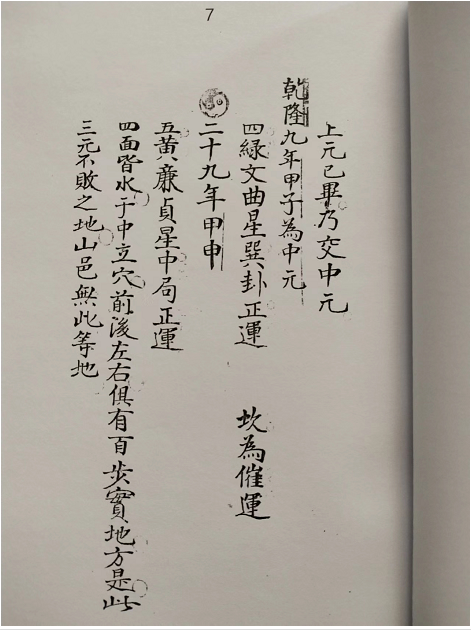 7
上元已畢乃交中元
乾隆九年甲子為中元
四緑文曲星巽卦正運　坎為催運
二十九年甲申
五黄廉貞星中局正運
四面皆水于中立穴前後左右俱有百步實地方是此
三元不敗之地山邑無此等地